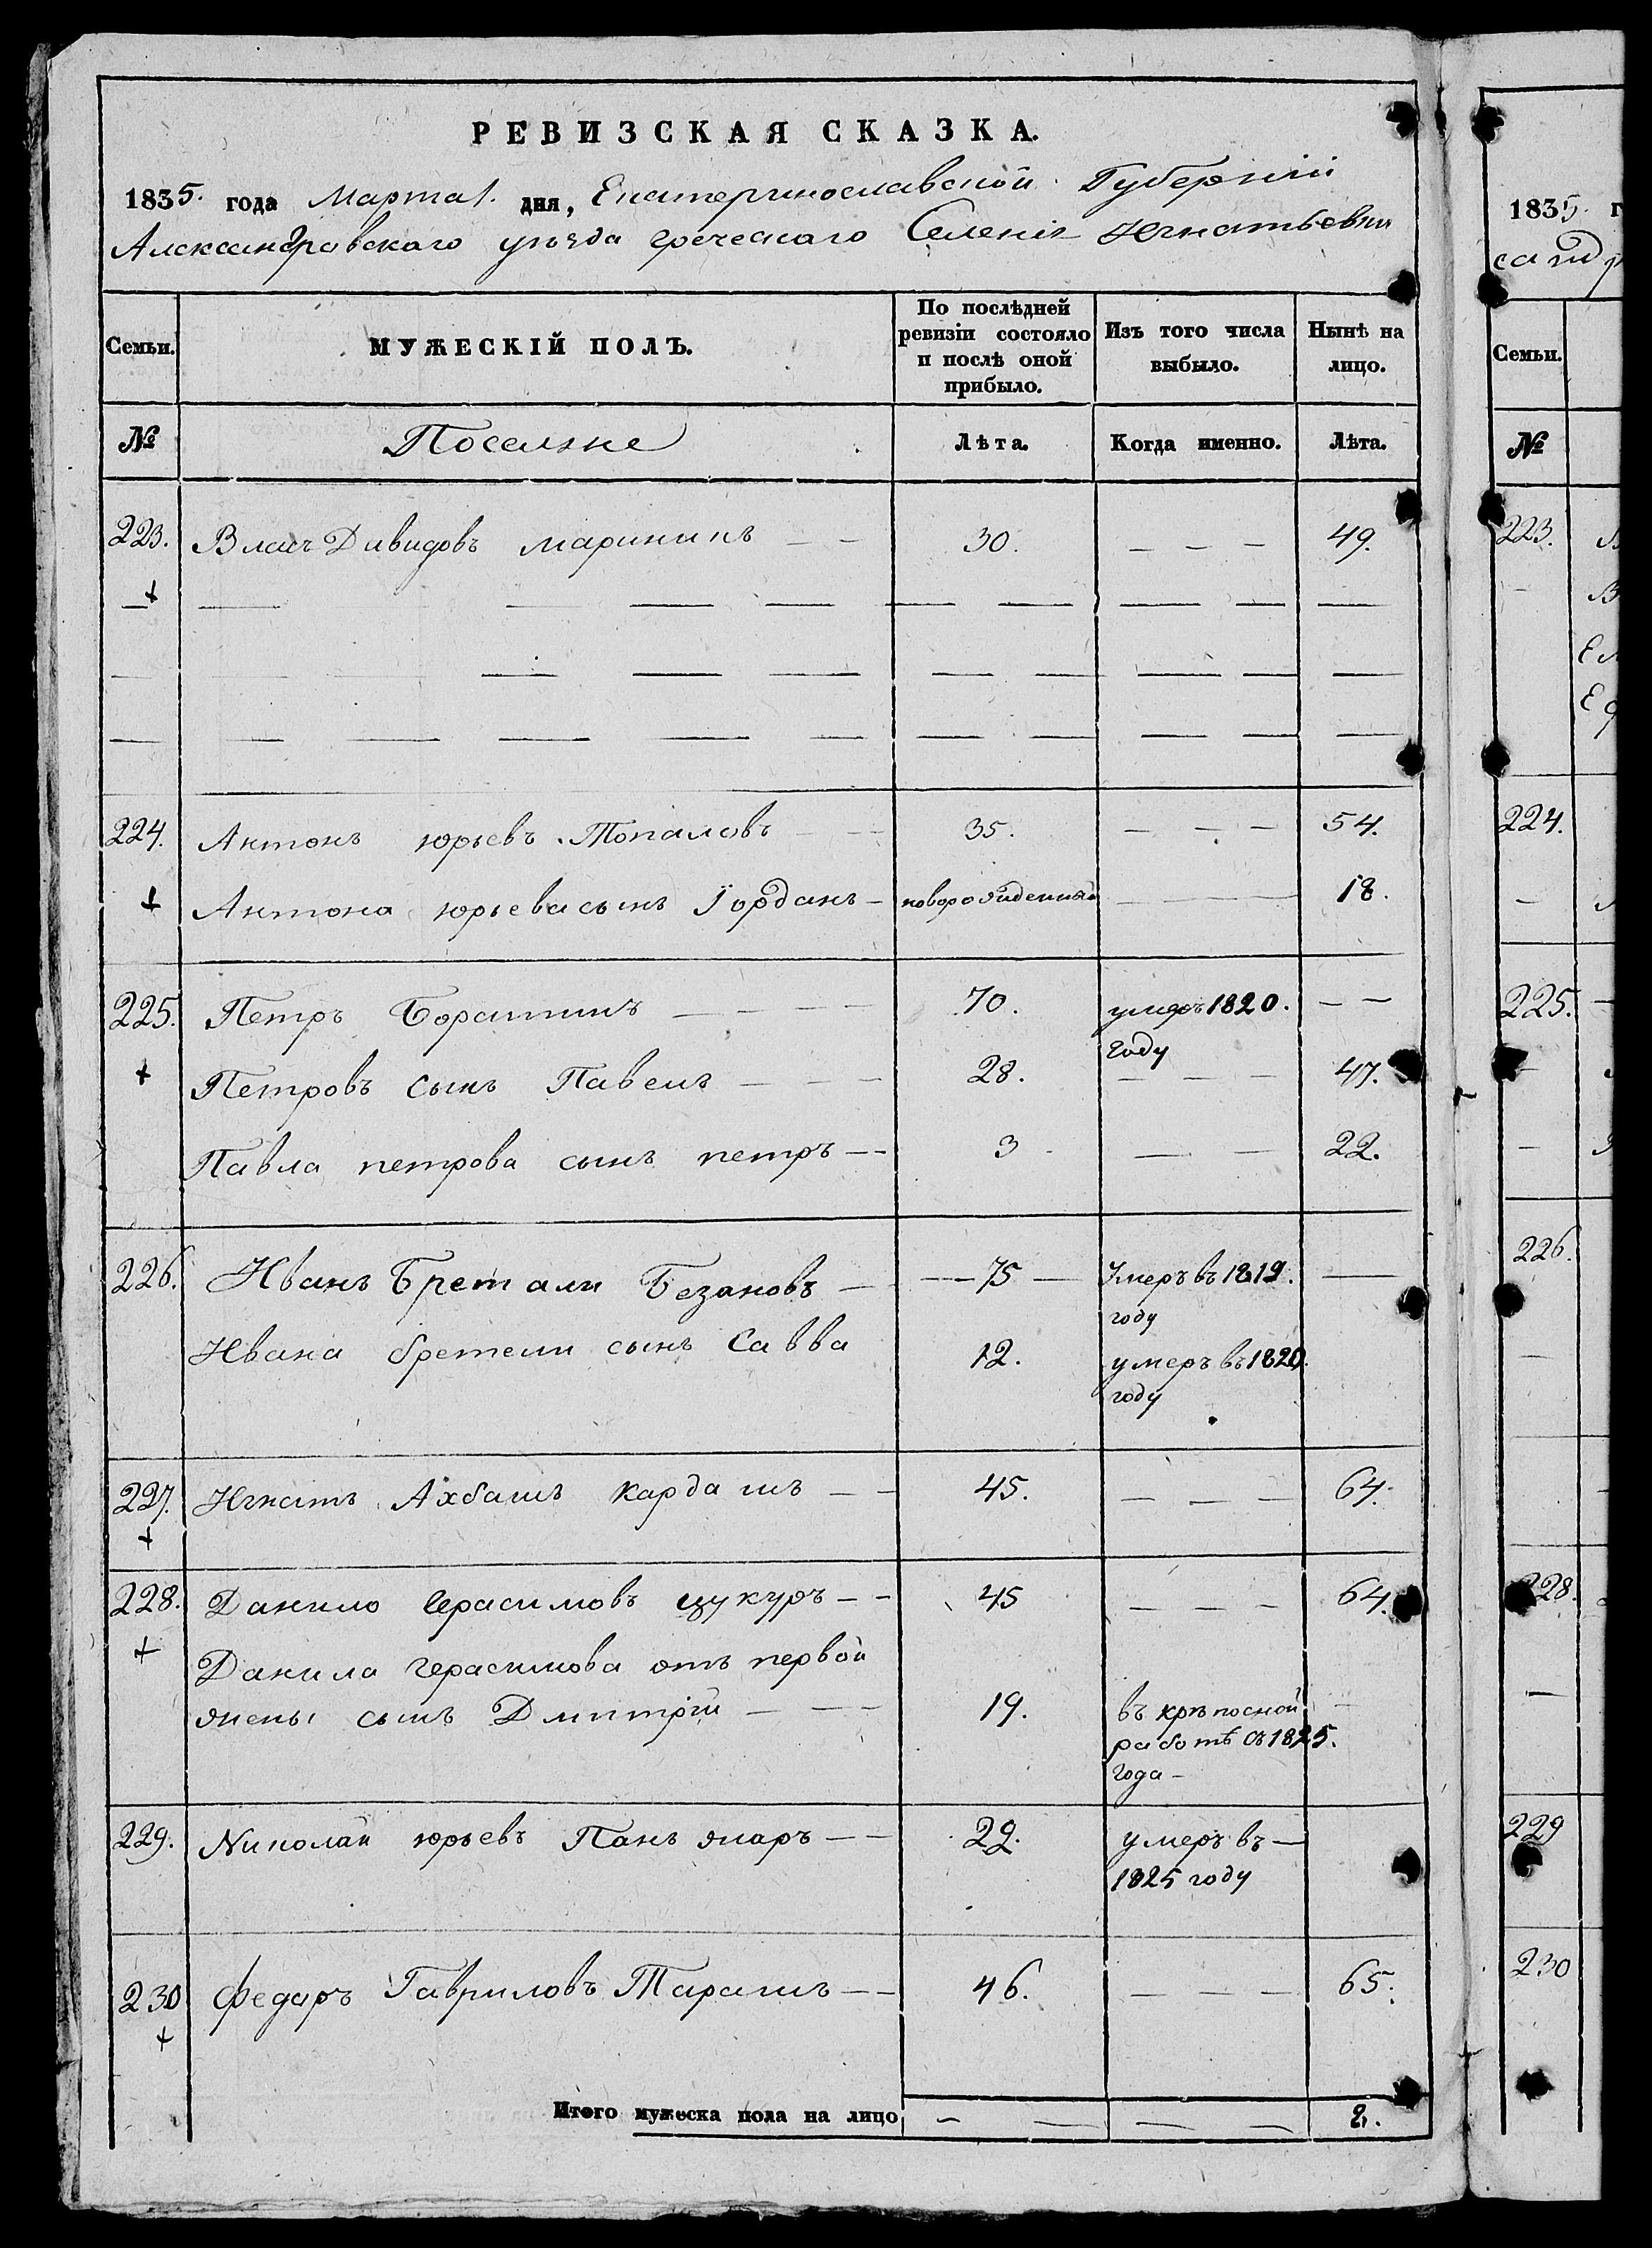 РЕВИЗСКАЯ СКАЗКА.
1835. года Марта 1. дня, Екатеринославской Губерніи
Александравскаго уѣзда греческаго Селенія Игнатьевки
Семьи. МУЖЕСКІЙ ПОЛЪ. По послѣдней ревизіи состояло и послѣ оной прибыло. Изъ того числа выбыло. Нынѣ на лицо.
№ Поселяне Лѣта. Когда именно. Лѣта.
223. Давидовъ 30. — — — 49.
224. Антонъ юрьевъ Топаловъ 35. — — — 54.
Антона юрьева сынъ Іорданъ — новорожденный — — — 18.
225. Петръ 70. умеръ 1820. — —
году
Петровъ сынъ Павелъ — — — 28. — — — 47.
Павла петрова сынъ петръ — — 3 — — 22.
226. Иванъ Бретали Безановъ — — 75 — Умеръ въ 1819. —
году
Ивана бретели сынъ Савва 12. умеръ въ 1820.
году
227. Игнатъ Ахбашъ кардашъ — — 45. — — — 64.
228. Данило Герасимовъ цукуръ — — 45 — — — 64.
Данила герасимова отъ первой
жены сынъ Дмитрій — — — 19. въ крѣпосной
работѣ съ 1825.
года —
229. Николай юрьевъ — — 29. умеръ въ —
1825 году
230 Федаръ Гавриловъ Тарашъ — — 46. — — — 65.
Итого мужеска пола на лицо — — — —
1835. г
Семьи.
№
223.
224.
225.
226.
228.
229
230